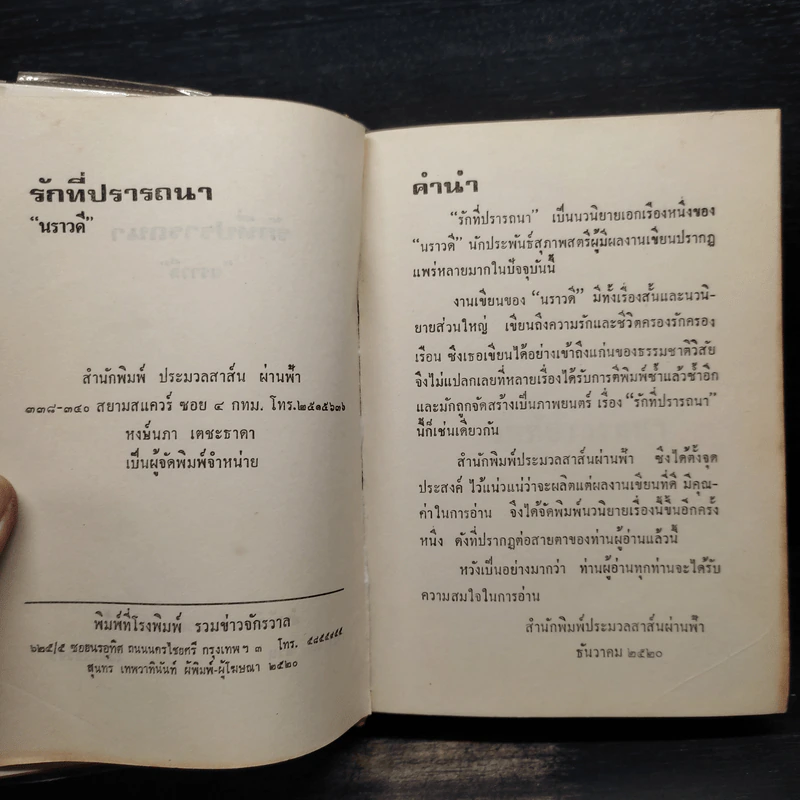 รักที่ปรารถนา
"นราวดี"
สำนักพิมพ์ ประมวลสาส์น ผ่านฟ้า
๓๓๘-๓๔๐ สยามสแควร์ ซอย ๔ กทม. โทร.๒๕๑๕๖๓๖
หงษ์นภา เตชะธาดา
เป็นผู้จัดพิมพ์จำหน่าย
พิมพ์ที่โรงพิมพ์ รวมข่าวจักรวาล
๖๒๕/๕ ซอยธนรอุทิศ ถนนนครไชยศรี กรุงเทพฯ ๓ โทร.
สุนทร เทพวาทินันท์ ผู้พิมพ์-ผู้โฆษณา ๒๕๒๐
คำนำ
"รักที่ปรารถนา" เป็นนวนิยายเอกเรื่องหนึ่งของ
"นราวดี" นักประพันธ์สุภาพสตรีผู้มีผลงานเขียนปรากฏ
แพร่หลายมากในปัจจุบันนี้
งานเขียนของ "นราวดี" มีทั้งเรื่องสั้นและนวนิ-
ยายส่วนใหญ่ เขียนถึงความรักและชีวิตครองรักครอง
เรือน ซึ่งเธอเขียนได้อย่างเข้าถึงแก่นของธรรมชาติวิสัย
จึงไม่แปลกเลยที่หลายเรื่องได้รับการตีพิมพ์ซ้ำแล้วซ้ำอีก
และมักถูกจัดสร้างเป็นภาพยนตร์ เรื่อง "รักที่ปรารถนา"
นี้ก็เช่นเดียวกัน
สำนักพิมพ์ประมวลสาส์นผ่านฟ้า ซึ่งได้ตั้งจุด
ประสงค์ ไว้แน่วแน่ว่าจะผลิตแต่ผลงานเขียนที่ดี มีคุณ-
ค่าในการอ่าน จึงได้จัดพิมพ์นวนิยายเรื่องนี้ขึ้นอีกครั้ง
หนึ่ง ดังที่ปรากฏต่อสายตาของท่านผู้อ่านแล้วนี้
หวังเป็นอย่างมากว่า ท่านผู้อ่านทุกท่านจะได้รับ
ความสมใจในการอ่าน
สำนักพิมพ์ประมวลสาส์นผ่านฟ้า
ธันวาคม ๒๕๒๐